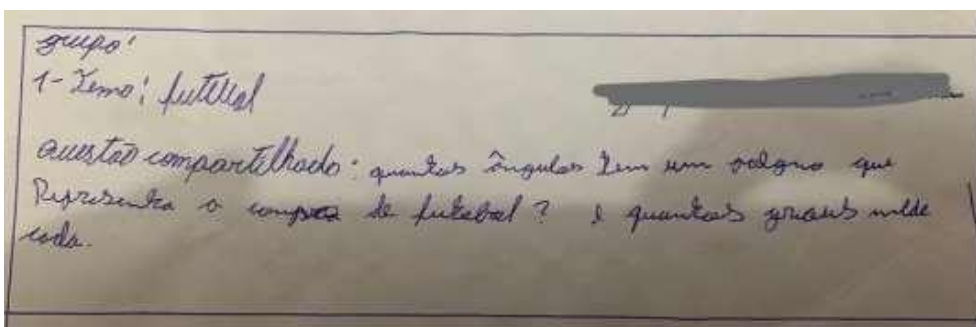 grupo:
1- Tema: futebol
questão compartilhado: quantos ângulos tem um que
Representa o de futebol? e quantos graus mede
cada.